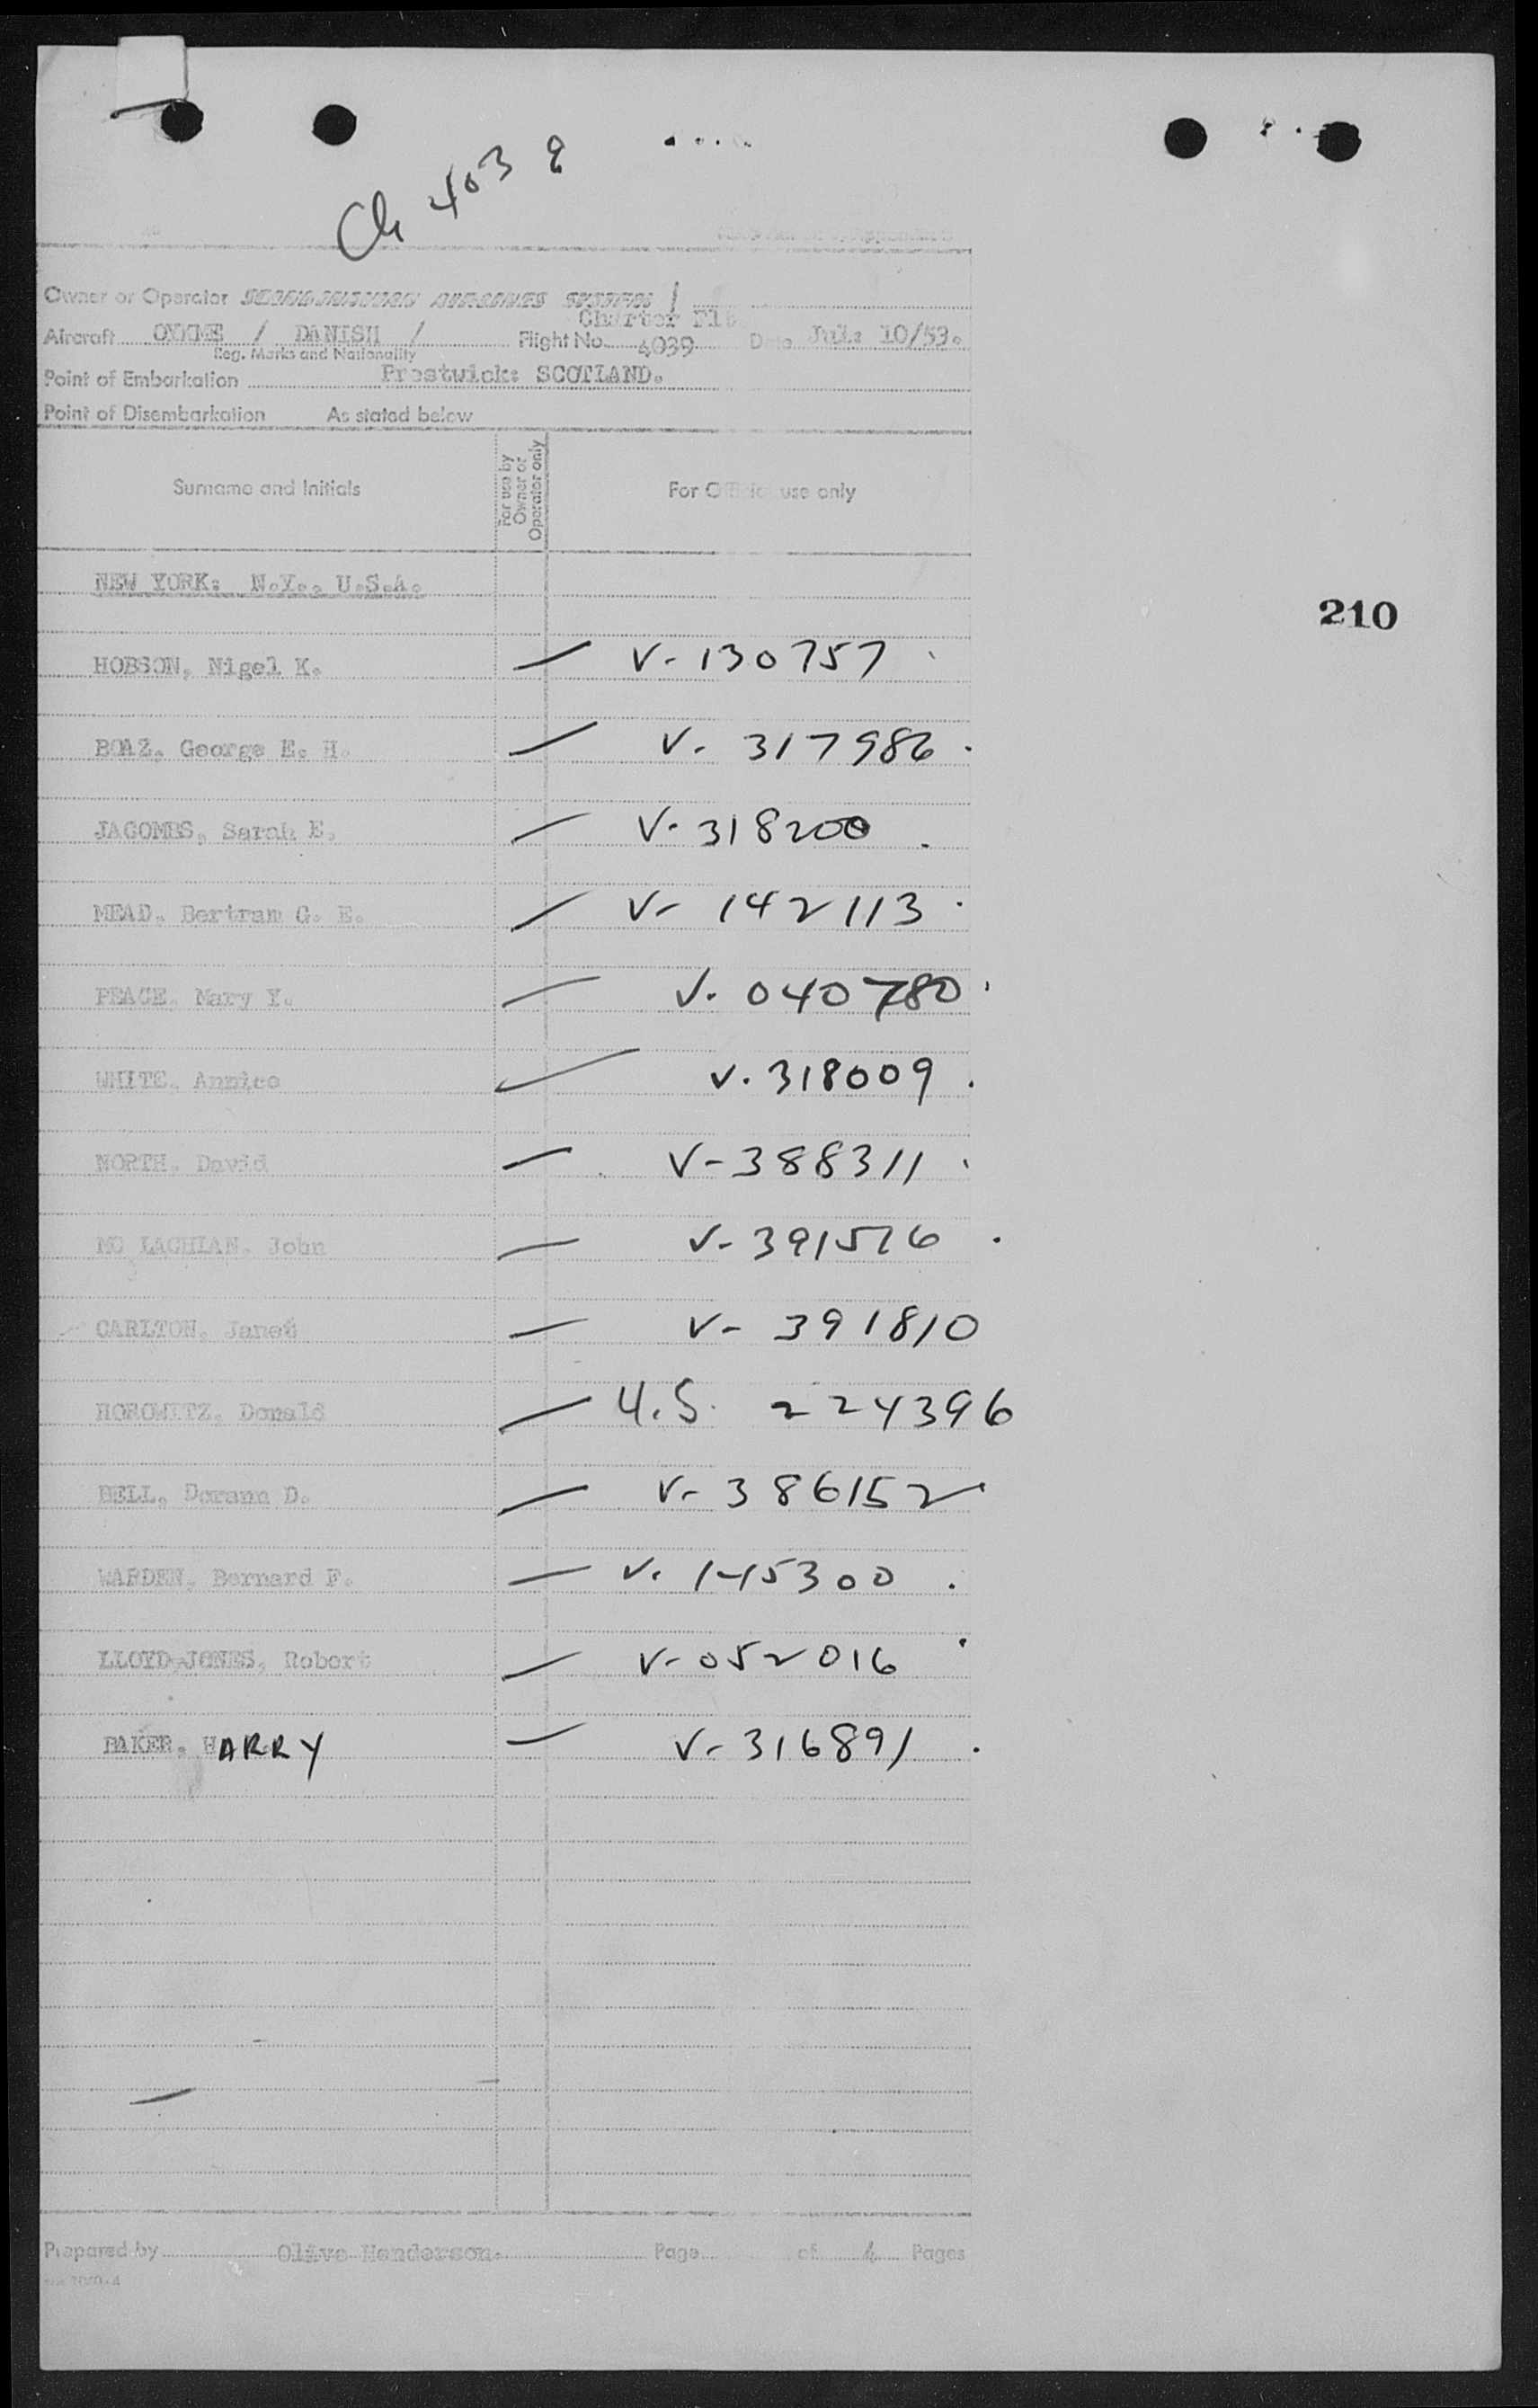 Ch 4039
Owner or Operator SCANDINAVIAN AIRLINES SYSTEM /
Charter Flt
Aircraft OYKME / DANISH / Flight No. 4039 Date Jul: 10/53.
Reg. Marks and Nationality
Point of Embarkation Prestwick: SCOTLAND.
Point of Disembarkation As stated below
Surname and Initials
For use by Owner or Operator only
For Official use only
NEW YORK: N.Y., U.S.A.
210
HOBSON, Nigel K. V-130757
BOAZ, George E. H. V. 317986
JACOMBS, Sarah E. V-318200
MEAD, Bertram G. E. V- 142113
PEACE, Mary Y. V. 040780
WHITE, Annice V. 318009
NORTH, David V-388311
MC LACHLAN, John V-391576
CARLTON, Janet V- 391810
HOROWITZ, Donald U.S. 224396
BELL, D. V-386152
WARDEN, Bernard F. V. 145300
LLOYD-JONES, Robert V-052016
BAKER, HARRY V-316891
Prepared by Olive Henderson. Page of 4 Pages